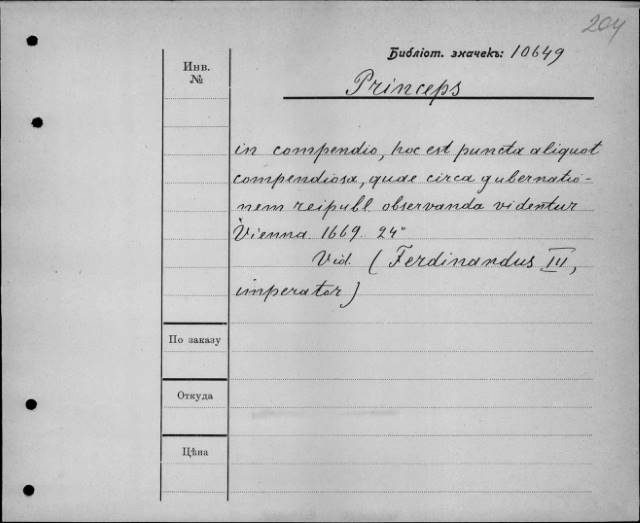 204
Библіот. значекъ: 10649
Инв.
№
Princeps
in compendio, hoc est puncta aliquot
compendiosa, quae circa gubernatio-
nem reipubl. observanda videntur
Vienna. 1669. 24°
Vid. (Ferdinandus III,
imperator)
По заказу
Откуда
Цѣна